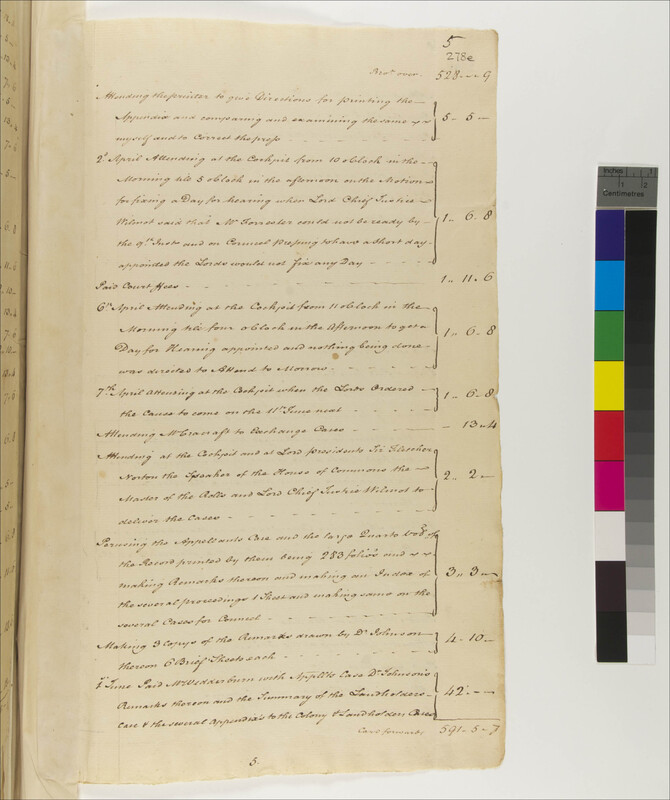 5
278e
Bro.t over. 528 - - 9
Attending the printer to give Directions for printing the
Appendix and comparing and examining the same
myself and to Correct the press - - - - 5 - 5 -
2.d April Attending at the Cockpit from 10 o Clock in the
Morning till 5 o Clock in the afternoon on the Motion
for fixing a Day for hearing when Lord Chief Justice
Wilmot said that Mr. Forrester could not be ready by
the 9th Insto and on Council pressing to have a short day
appointed the Lords would not fix any Day - 1 - 6. 8
Paid Court ffees - - - - - - 1 .. 11 - 6
6th April Attending at the Cockpit from 11 o Clock in the
Morning till four o Clock in the Afternoon to get a
Day for Hearing appointed and nothing being done
was directed to Attend to Morrow - - - - 1 .. 6 - 8
7th April Attending at the Cockpit when the Lords Ordered
the Cause to come on the 11th June next - - - 1 .. 6 - 8
Attending Mr. Cracraft to Exchange Cases - - - - 13 .. 4
Attending at the Cockpit and at Lord presidents Sir Fletcher
Norton the Speaker of the House of Commons the
Master of the Rolls and Lord Chief Justice Wilmot to
deliver the Cases - - - - - - 2 .. 2 -
Perusing the Appellants Case and the large Quarto of
the Record printed by them being 283 folios and
making Remarks thereon and making an Index of
the several proceedings 1 Sheet and making same on the
several Cases for Council - - - - 3 .. 3 -
Making 3 Copys of the Remarks drawn by Dr. Johnson
thereon 6 Brief Sheets each - - - - 4 - 10 -
June Paid Mr. Wedderburn with Appllts Case Dr. Johnson's
Remarks thereon and the Summary of the Landholders
Case & the several Appendix's to the Colony & Landholders Cases 42 - -
Carr.d forwards 591 - 5 - 7
5.
Inches
1
2
Centimetres